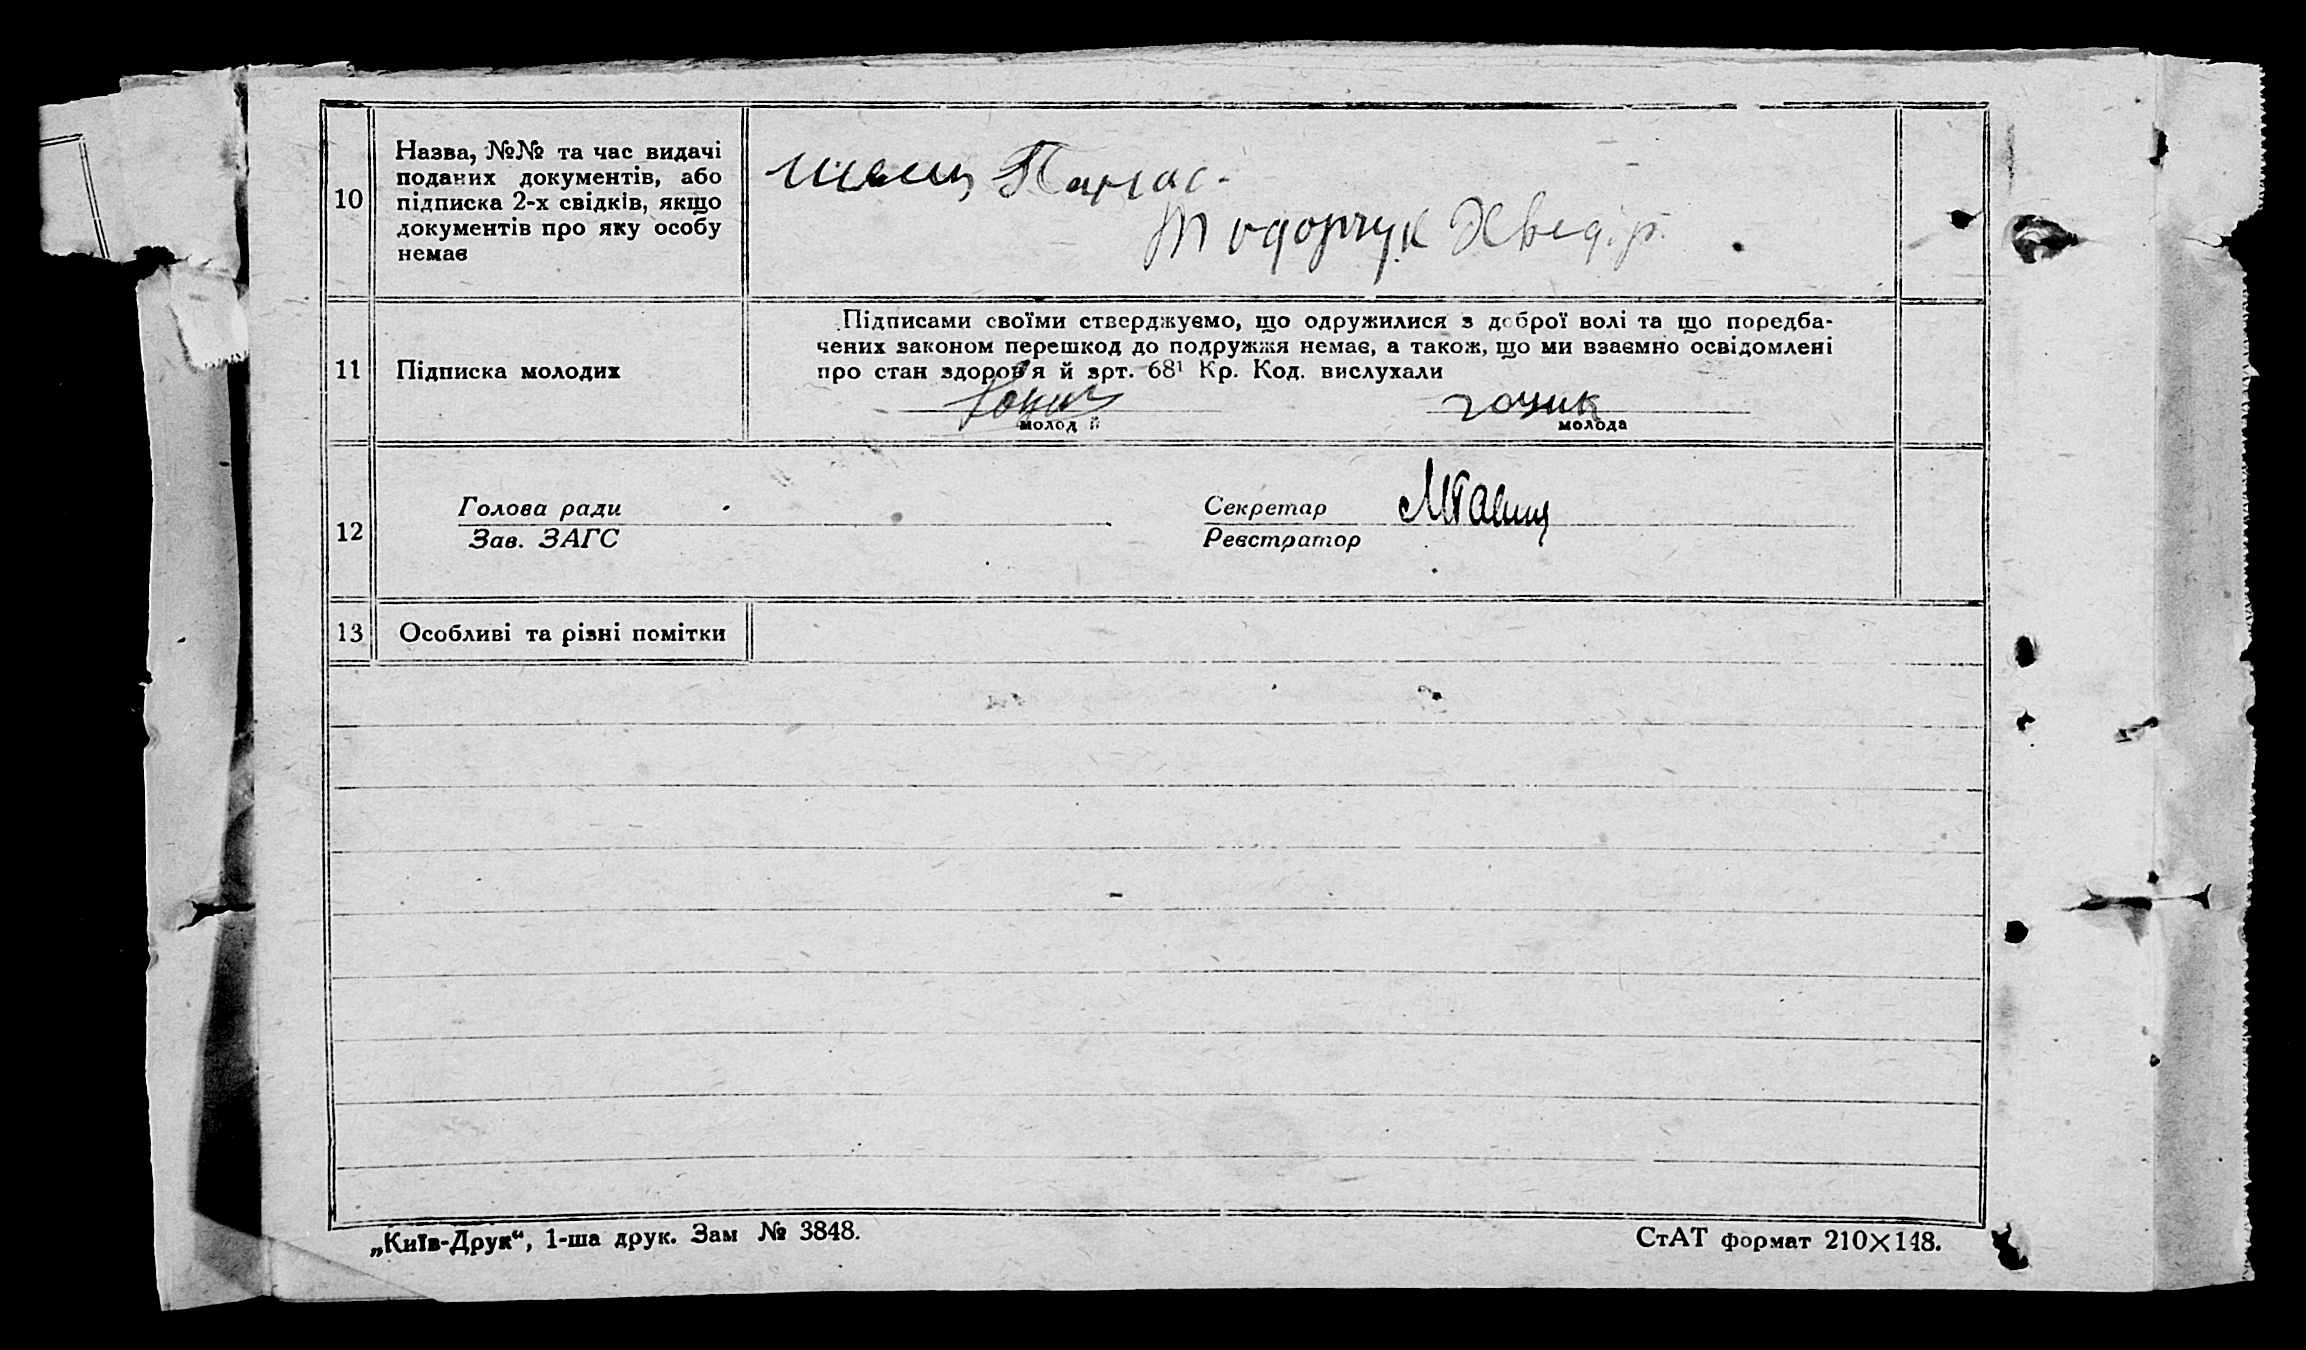 10
Назва, №№ та час видачі
поданих документів, або
підписка 2-х свідків, якщо
документів про яку особу
немає
Панас.
Тодорчук Хведір.
11
Підписка молодих
Підписами своїми стверджуємо, що одружилися з доброї волі та що поредба-
чених законом перешкод до подружжя немає, а також, що ми взаємно освідомлені
про стан здоров'я й арт. 68¹ Кр. Код. вислухали
гоцик
молод й
молода
12
Голова ради
Зав. ЗАГС
Секретар
Реєстратор
13
Особливі та різні помітки
„Київ-Друк“, 1-ша друк. Зам № 3848.
СтАТ формат 210×148.